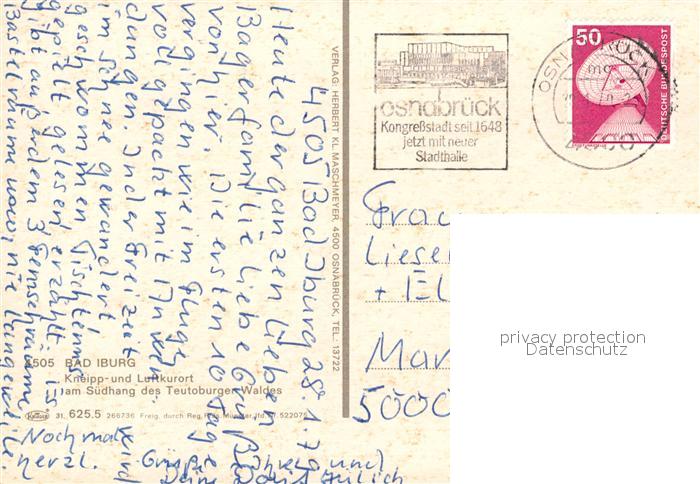 4505 Bad Iburg 28.1.79
Heute der ganzen lieben
Bagerfamilie liebe Grüße
von hier. Die ersten 10 Tage
vergingen wie im Fluge
voll gepackt mit
dungen In der Freizeit wird
im Schnee gewandert
geschwommen Tischtennis
gespielt gelesen erzählt
gibt außerdem 3 Fernsehräume
Bastelräume usw., nie Langeweile.
Nochmals
herzl. Grüße
und
VERLAG HERBERT KL. MASCHMEYER, 4500 OSNABRÜCK, TEL: 13722
4505 BAD IBURG
Kneipp- und Luftkurort
am Südhang des Teutoburger Waldes
31. 625.5 266736 Freig. durch Reg.
osnabrück
Kongreßstadt seit 1648
jetzt mit neuer
Stadthalle
50
DEUTSCHE BUNDESPOST
OSNABRÜCK
mg
Liese
+ El
Mar
5000
privacy protection
Datenschutz